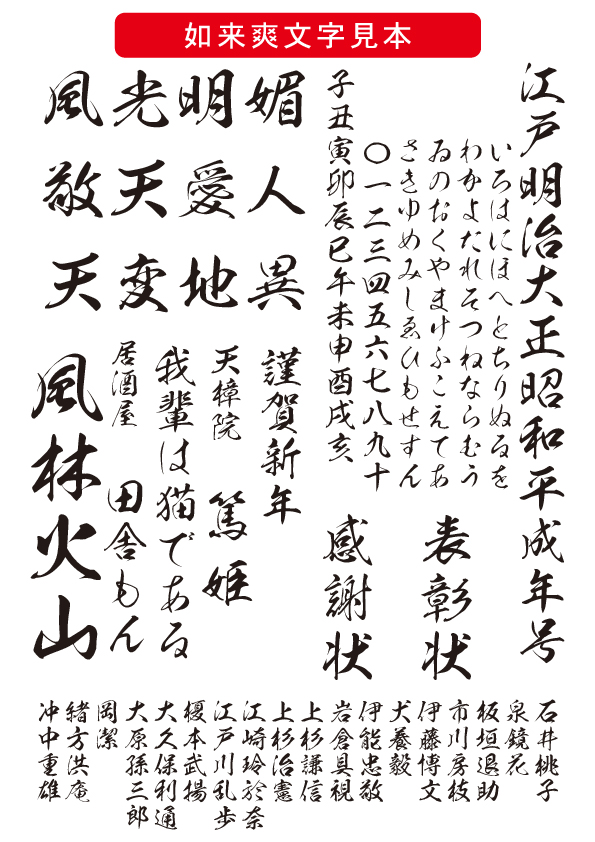 如来爽文字見本
江戸明治大正昭和平成年号
いろはにほへとちりぬるを
わかよたれそつねならむう
ゐのおくやまけふこえてあ
さきゆめみしゑひもせすん
〇一二三四五六七八九十
子丑寅卯辰巳午未申酉戌亥
表彰状
感謝状
媚人異
明愛地
光天変
風敬天
謹賀新年
天樟院 篤姫
我輩は猫である
居酒屋 田舎もん
風林火山
石井桃子
泉鏡花
板垣退助
市川房枝
伊藤博文
犬養毅
伊能忠敬
岩倉具視
上杉謙信
上杉治憲
江崎玲於奈
江戸川乱歩
榎本武揚
大久保利通
大原孫三郎
岡潔
緒方洪庵
冲中重雄